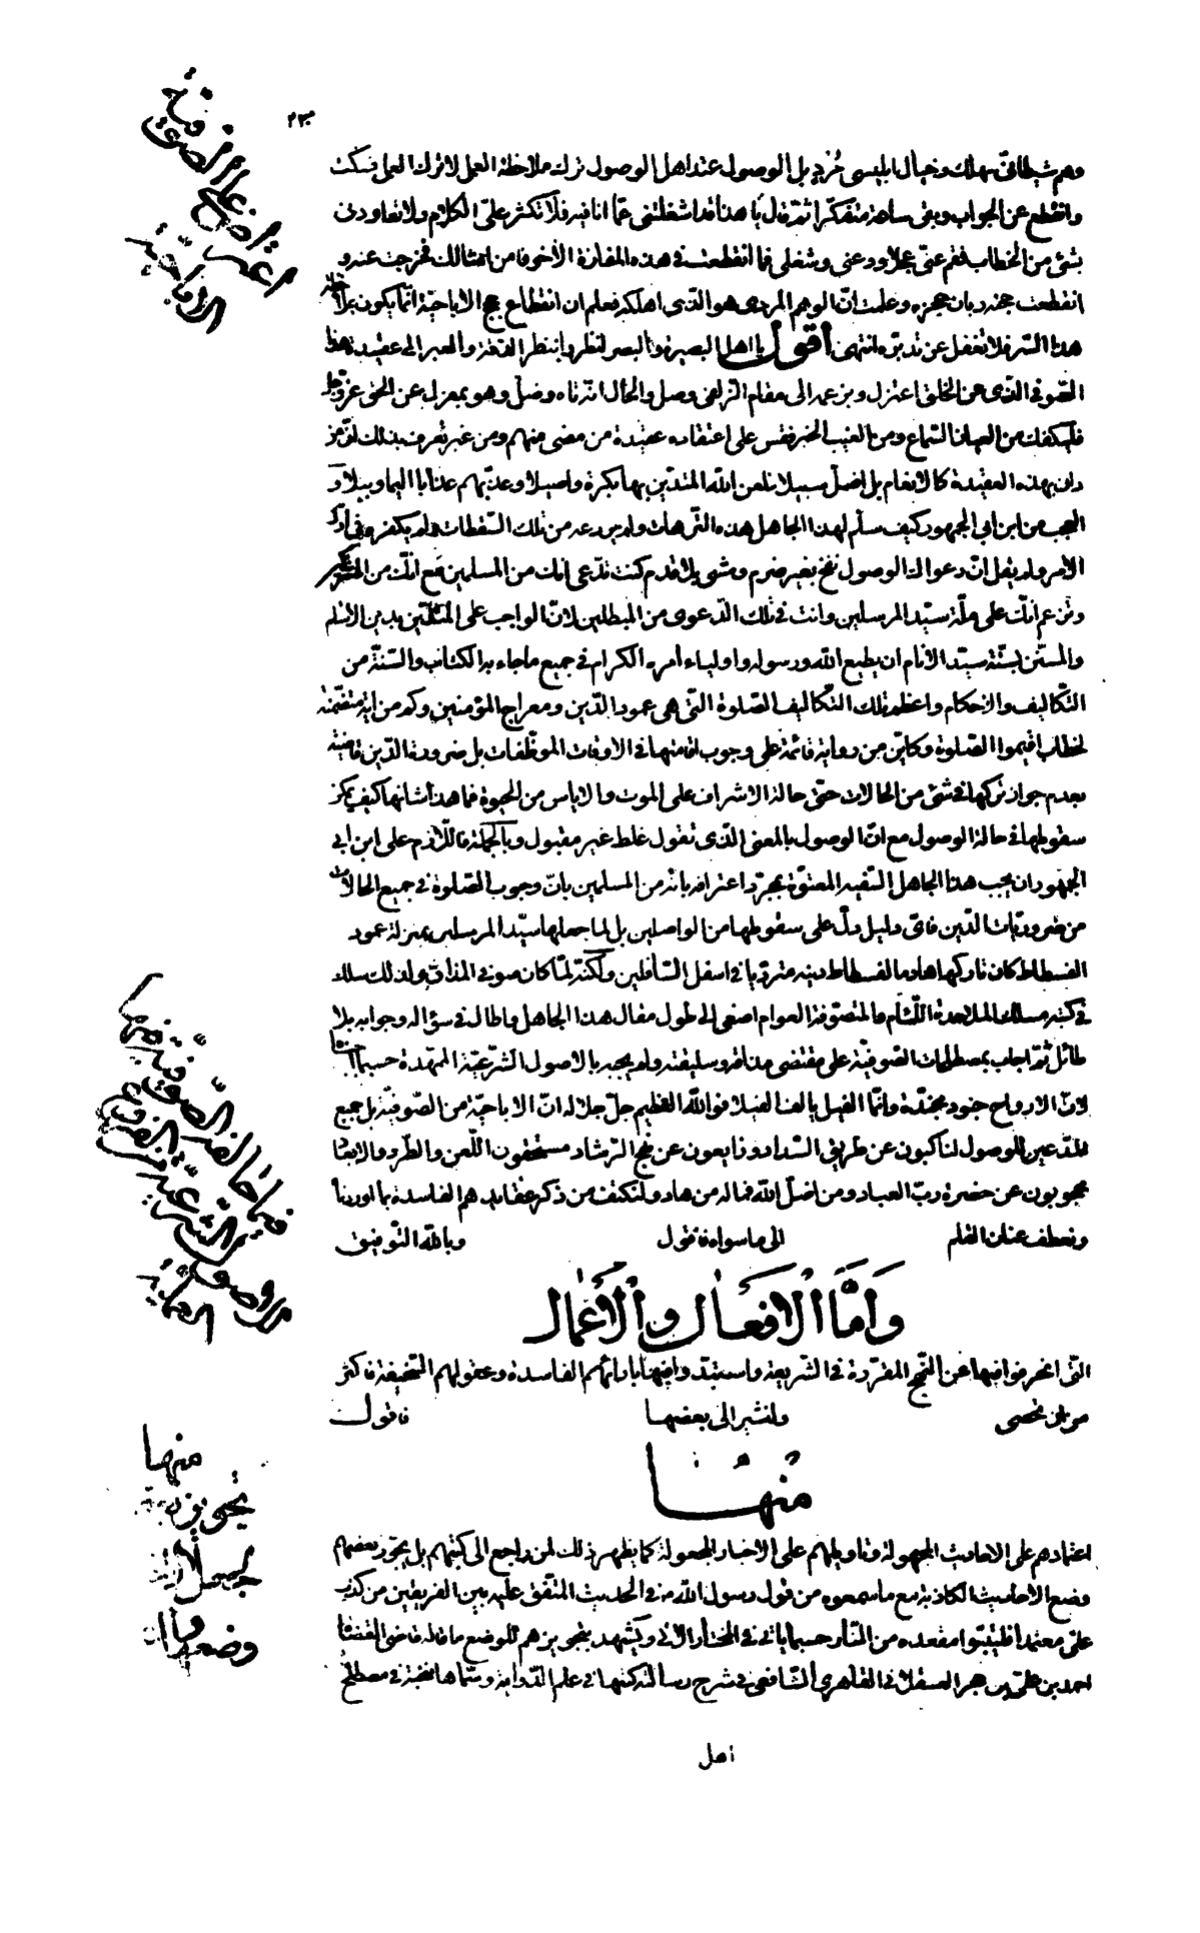 وهم شيطاني مهلك وخيال ابليسي مُزدٍ بل الوصول عند اهل الوصول ترك ملاحظة العمل لا ترك العمل فسكت
وانقطع عن الجواب وبقى ساعة متفكرا ثمّ قال يا هذا قد اشغلتنى عمّا انا فيه فلا تكثر علىّ الكلام ولا تعاودنى
بشئ من الخطاب فقم عنّى عجلا ودعنى وشغلى فما انقطعت فى هذه المفازة الا خوفا من امثالك فخرجت عنه و
انقطعت حجته وبان عجزه وعلمت انّ الوهم المردى هو الذى اهلكه فعلم ان انقطاع حجج الاباحيّة انّما يكون
هذا السّر فلا تغفل عن تدبّره انتهى اقول يا اهل البصيرة والبصر لنظر والعبر الى عقيدة هذا
الصّوفى الذى عن الخلق اعتزل وبزعمه الى مقام الزلفى وصل والحال انّه تاه وضلّ وهو بمعزل عن الحق عزّ وجل
فليكفك من العيان السّماع ومن الغيب الخبر فقس على اعتقاده عقيدة من مضى منهم ومن غبر
دان بهذه العقيدة كالانعام بل اضلّ سبيلا لعن اللّه المتديّن بها بكرة واصيلا وعذّبهم عذابا اليما وبيلا و
العجب من ابن ابى الجمهور كيف سلّم لهذا الجاهل هذه الترّهات ولم يردعه من تلك السّقطات ولم يكفره فى اول
الامر ولم يقل انّ دعواك الوصول نفخ بغير ضرم ومشى بلا قدم كنت تدّعى انك من المسلمين مع انّك من
وتزعم انّك على ملّة سيّد المرسلين وانت فى تلك الدّعوى من المبطلين لانّ الواجب على المتديّن بدين الاسلام
والمستن بسنّة سيّد الانام ان يطيع اللّه ورسوله واولياء امره الكرام فى جميع ما جاء به الكتاب والسّنّة من
التّكاليف والاحكام واعظم تلك التّكاليف الصّلوة التى هى عمود الدّين ومعراج المؤمنين وكم من اية متضمّنة
لخطاب اقيموا الصّلوة وكايّن من رواية قائمة على وجوب اقامتها فى الاوقات الموظّفات بل ضرورة الدّين قاضية
بعدم جواز تركها فى شئ من الحالات حتّى حالة الاشراف على الموت والاياس من الحيوة فما هذا شانها كيف يمكن
سقوطها فى حالة الوصول مع انّ الوصول بالمعنى الذى تقول غلط غير مقبول وبالجملة فاللّازم على ابن ابى
الجمهور ان يجيب هذا الجاهل السّفيه المعتوّه بمجرّد اعترافه بانّه من المسلمين بانّ وجوب الصّلوة فى جميع الحالات
من ضروريّات الدّين فاىّ دليل دلّ على سقوطها من الواصلين بل لما جعلها سيّد المرسلين بمنزلة عمود
الفسطاط كان تاركها هادما لفسطاط دينه متردّيا فى اسفل السّافلين ولكنّه لمّا كان صوفى المذاق ولذلك سلك
فى كتبه مسلك الملاحدة اللّئام والمتصوّفة العوام اصغى الى طول مقال هذا الجاهل واطال فى سؤاله وجوابه بلا
طائل ثمّ اجاب بمصطلحات الصّوفيّة على مقتضى مذاقه وسليقته ولم يجبه بالاصول الشّرعيّة الممهّدة حسبما
لانّ الارواح جنود مجنّدة وانّما الفيل يالف الفيلا فو اللّه العظيم جلّ جلاله انّ الاباحيّة من الصّوفيّة بل جميع
المدّعين للوصول لناكبون عن طريق السّداد وزايغون عن نهج الرّشاد مستحقّون اللّعن والطّرد والابعاد
محجوبون عن حضرة ربّ العباد ومن اضلّ اللّه فماله من هاد ولنكتف من ذكر عقايدهم الفاسدة بما اوردنا
ونعطف عنان القلم الى ما سواه فاقول وباللّه التّوفيق
وَاَمَّا اْلاَفعَال واْلاَعْمال
التى انحرفوا فيها عن النّهج المقرّرة فى الشّريعة واستبدّوا فيها باراٸهم الفاسدة وعقولهم السّخيفة فاكثر
من ان تحصى ولنشير الى بعضها فاقول
مُنهُا
اعتمادهم على الاحاديث المجهولة وتاويلهم على الاخبار المجعولة كما يظهر ذلك لمن راجع الى كتبهم بل يجوّز بعضهم
وضع الاحاديث الكاذبة مع ما سمعوه من قول رسول اللّه ص فى الحديث المتّفق عليه بين الفريقين من كذب
علىّ معتمدا فليتبوّا مقعده من النّار حسبما ياتى فى ويشهد بتجويزهم للوضع ما قاله قاضى القضاة
احمد بن علىّ بن حجر العسقلانى القاهرى الشّافعى فى شرح رسالته كتبها فى علم الدّراية وسمّاها نخبة فى مصطلح
اهل
اعتراض على الصوفيّة
الاباحيّة
منها
تجويز
وضعها